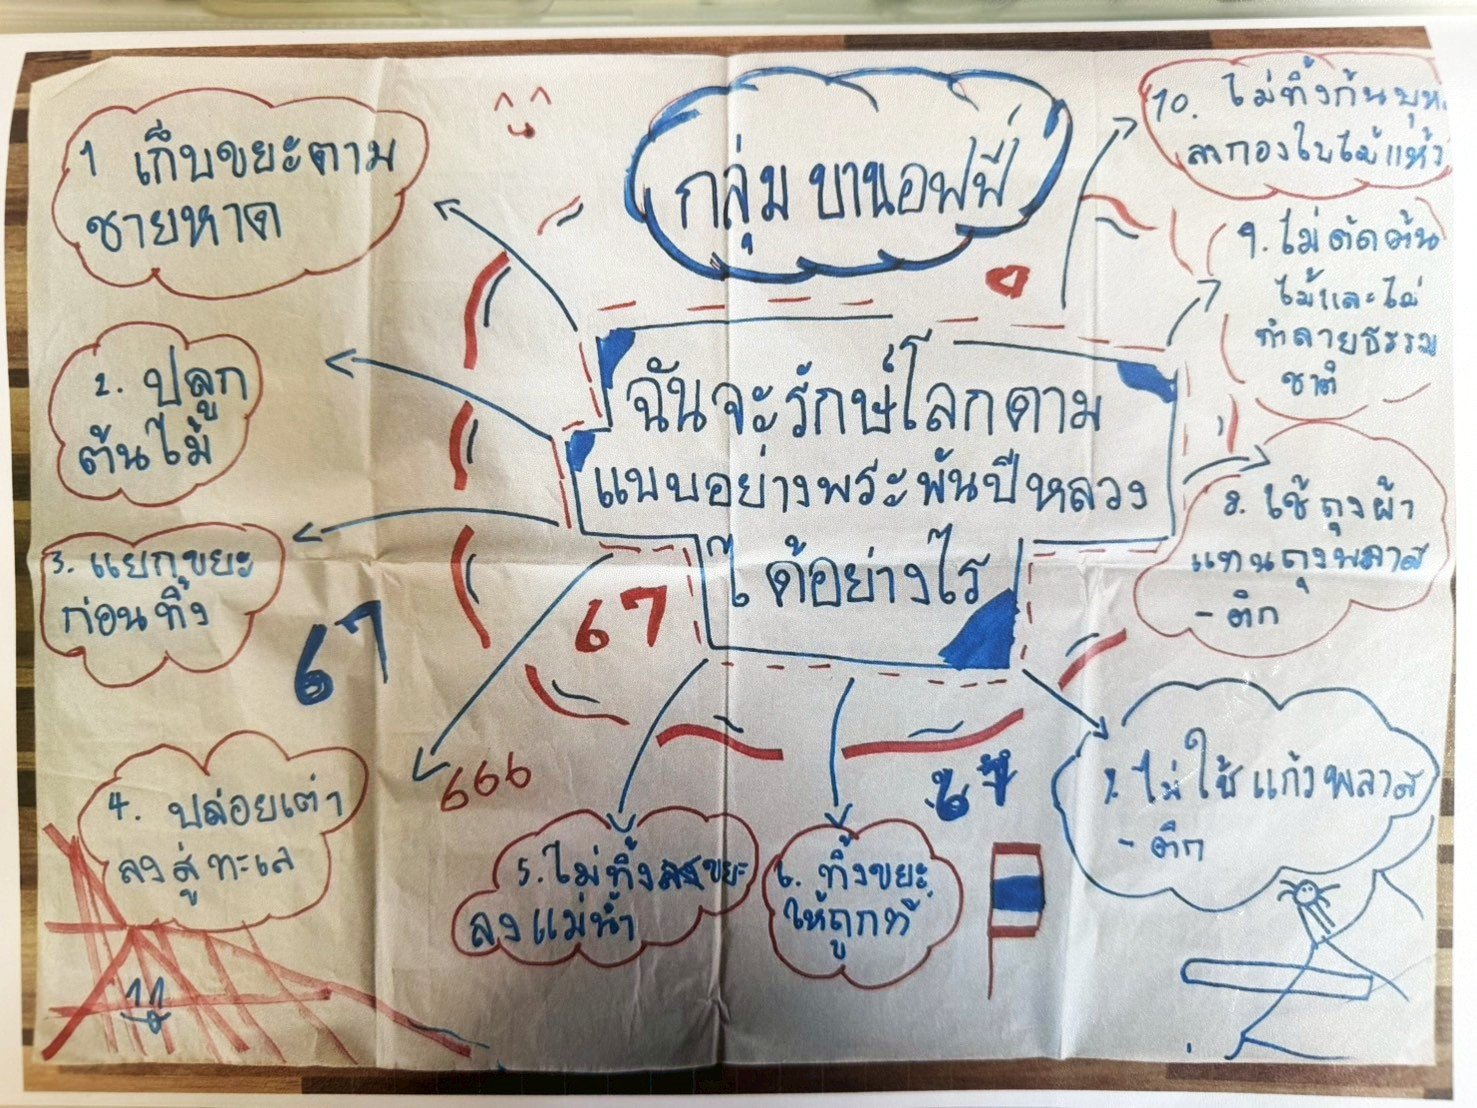 กลุ่ม บานอฟฟี่
ฉันจะรักษ์โลกตาม
แบบอย่างพระพันปีหลวง
ได้อย่างไร
1 เก็บขยะตาม
ชายหาด
2. ปลูก
ต้นไม้
3. แยกขยะ
ก่อนทิ้ง
4. ปล่อยเต่า
ลงสู่ทะเล
5. ไม่ทิ้งขยะ
ลงแม่น้ำ
6. ทิ้งขยะ
ให้ถูกที่
7. ไม่ใช้แก้วพลาส
- ติก
8. ใช้ถุงผ้า
แทนถุงพลาส
- ติก
9. ไม่ตัดต้น
ไม้และไม่
ทำลายธรรม
ชาติ
10. ไม่ทิ้งก้น
67
67
666